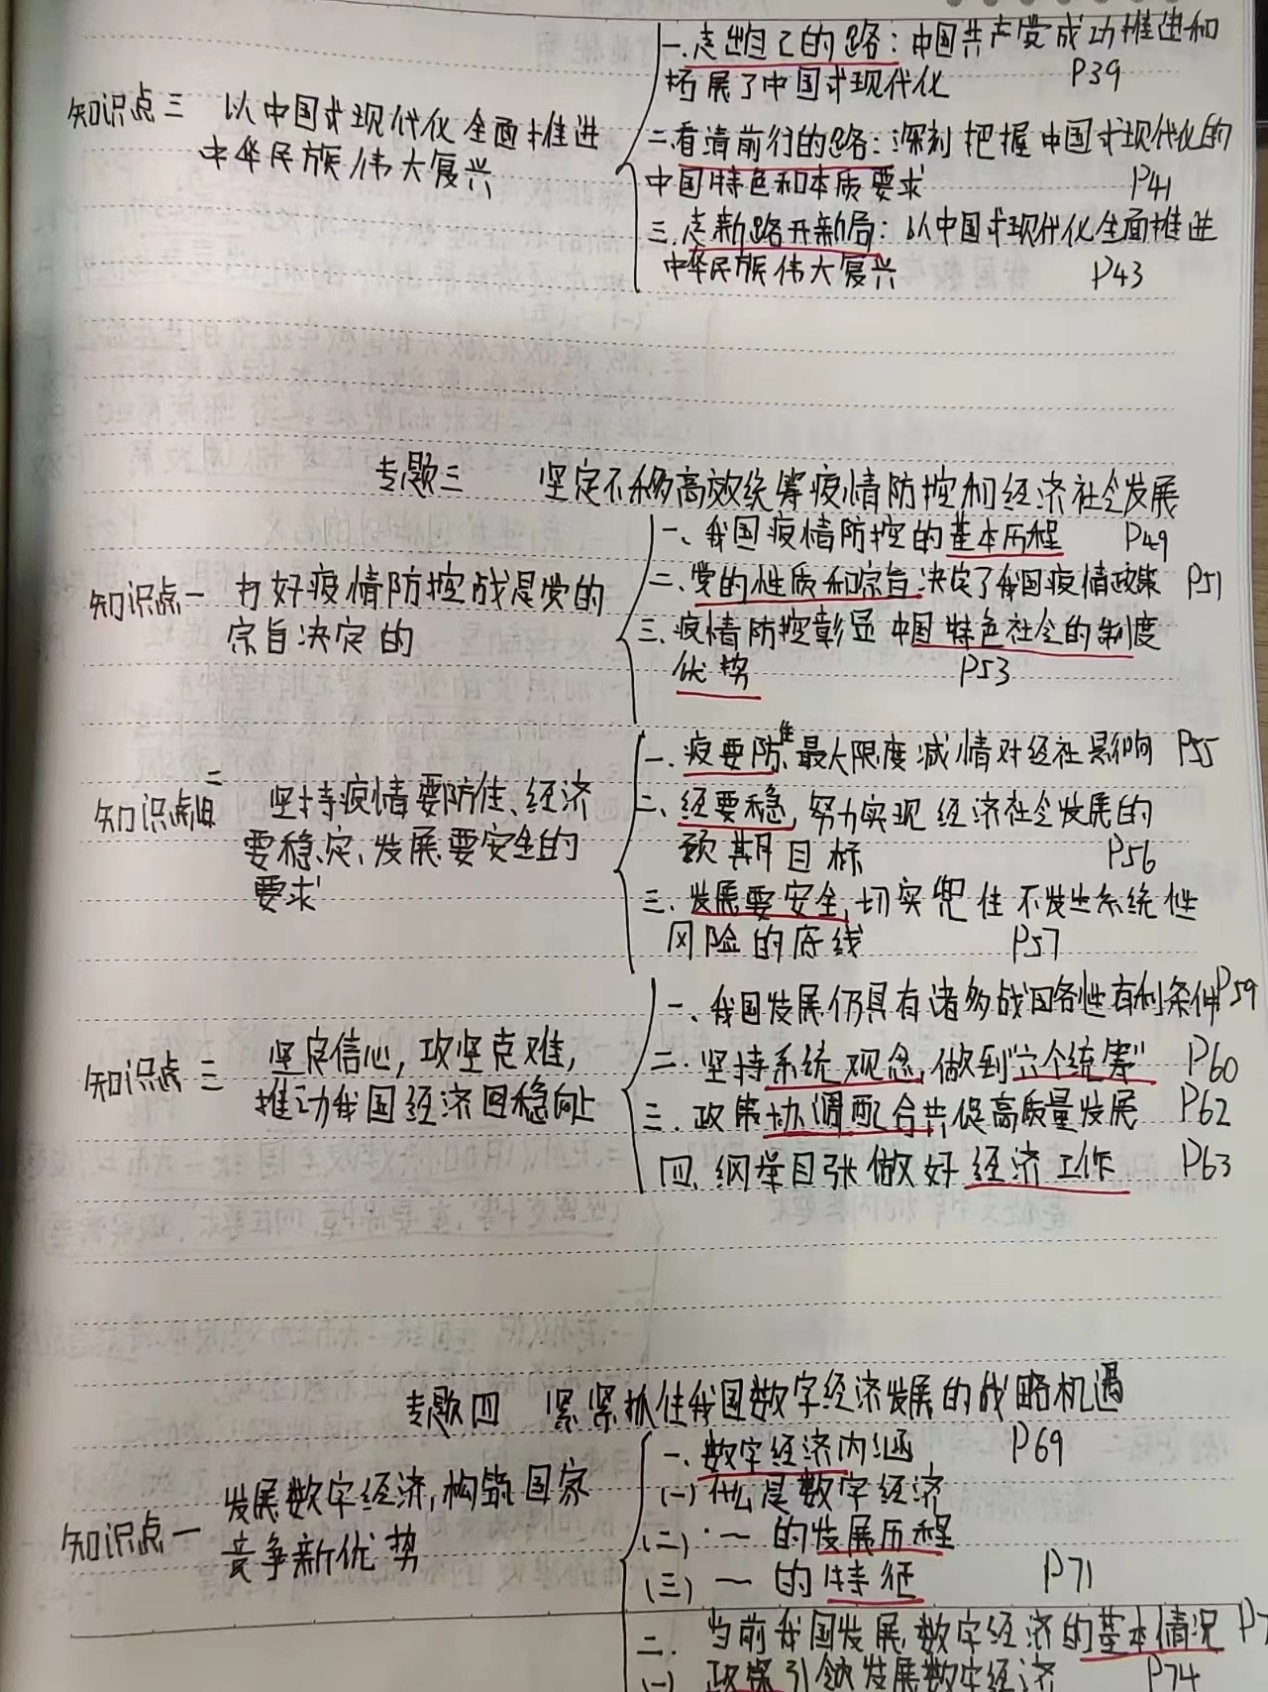 一.走出自己的路：中国共产党成功推进和
拓展了中国式现代化 P39
知识点三 以中国式现代化全面推进
中华民族伟大复兴
二.看清前行的路：深刻把握中国式现代化的
中国特色和本质要求 P41
三.走新路开新局：以中国式现代化全面推进
中华民族伟大复兴 P43
专题三 坚定不移高效统筹疫情防控和经济社会发展
一、我国疫情防控的基本历程 P49
知识点一 打好疫情防控战是党的
宗旨决定的
二.党的性质和宗旨决定了我国疫情政策 P51
三.疫情防控彰显中国特色社会的制度
优势 P53
知识点二 坚持疫情要防住、经济
要稳定、发展要安全的
要求
一.疫要防住最大限度减情对经社影响 P55
二、经要稳,努力实现经济社会发展的
预期目标 P56
三.发展要安全,切实兜住不发生系统性
风险的底线 P57
知识点三 坚定信心,攻坚克难,
推动我国经济回稳向上
一、我国发展仍具有诸多战略性有利条件P59
二.坚持系统观念,做到“六个统筹” P60
三.政策协调配合共促高质量发展 P62
四.纲举目张做好经济工作 P63
专题四 紧紧抓住我国数字经济发展的战略机遇
知识点一 发展数字经济,构筑国家
竞争新优势
一、数字经济内涵 P69
(一)什么是数字经济
(二)·一的发展历程
(三)一的特征 P71
二.当前我国发展数字经济的基本情况
(一)政策引领发展数字经济 P74